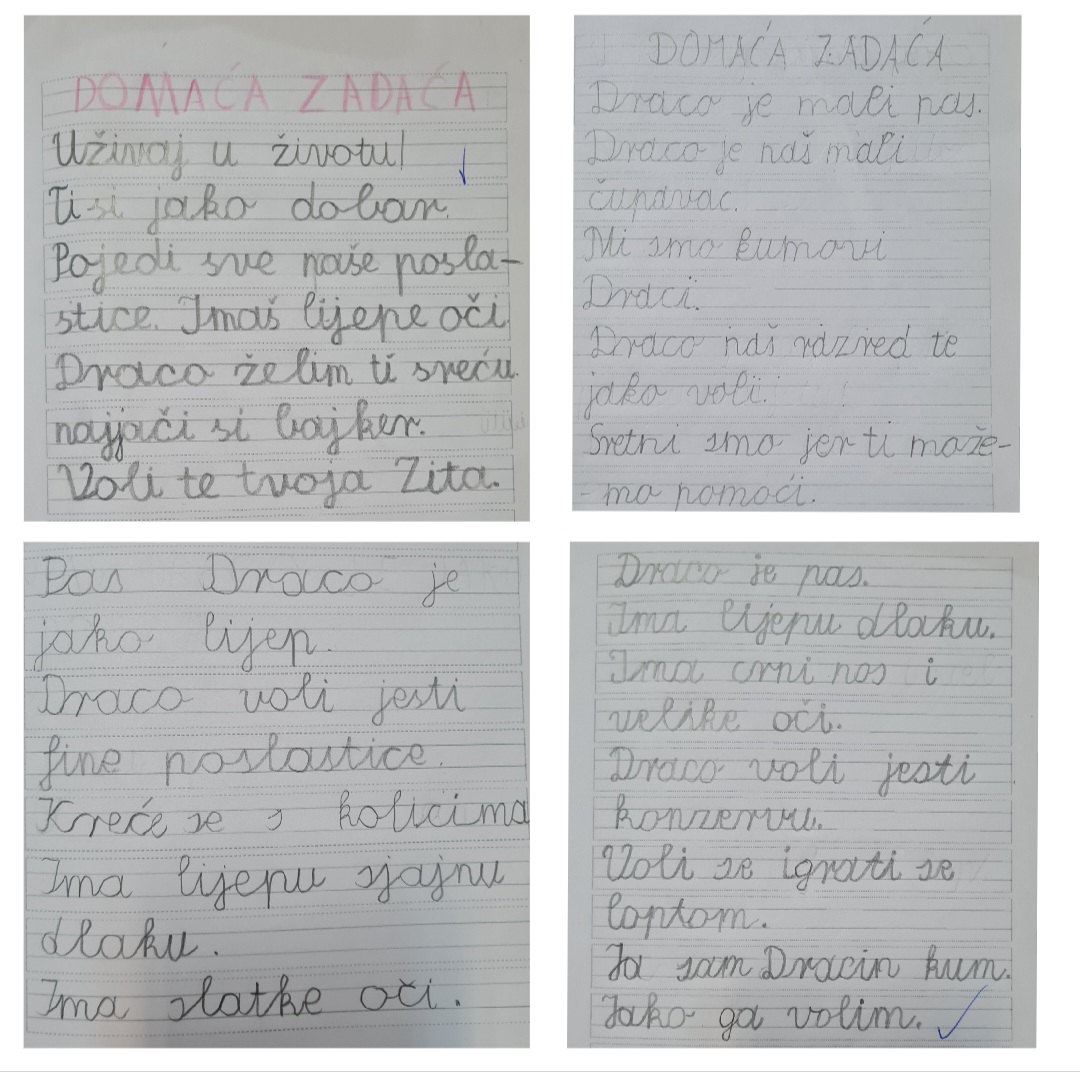 DOMAĆA ZADAĆA
Uživaj u životu!
Ti si jako dobar.
Pojedi sve naše posla-
stice. Imaš lijepe oči
Draco želim ti sreću.
najjači si bajker.
Voli te tvoja Zita.
DOMAĆA ZADAĆA
Draco je mali pas.
Draco je naš mali
čupavac.
Mi smo kumovi
Draci.
Draco naš razred te
jako voli.
Sretni smo jer ti može-
-mo pomoći.
Pas Draco je
jako lijep.
Draco voli jesti
fine poslastice.
Kreće se s kolicima
Ima lijepu sjajnu
dlaku.
Ima slatke oči.
Draco je pas.
Ima lijepu dlaku.
Ima crni nos i
velike oči.
Draco voli jesti
konzervu.
Voli se igrati se
loptom.
Ja sam Dracin kum.
Jako ga volim.